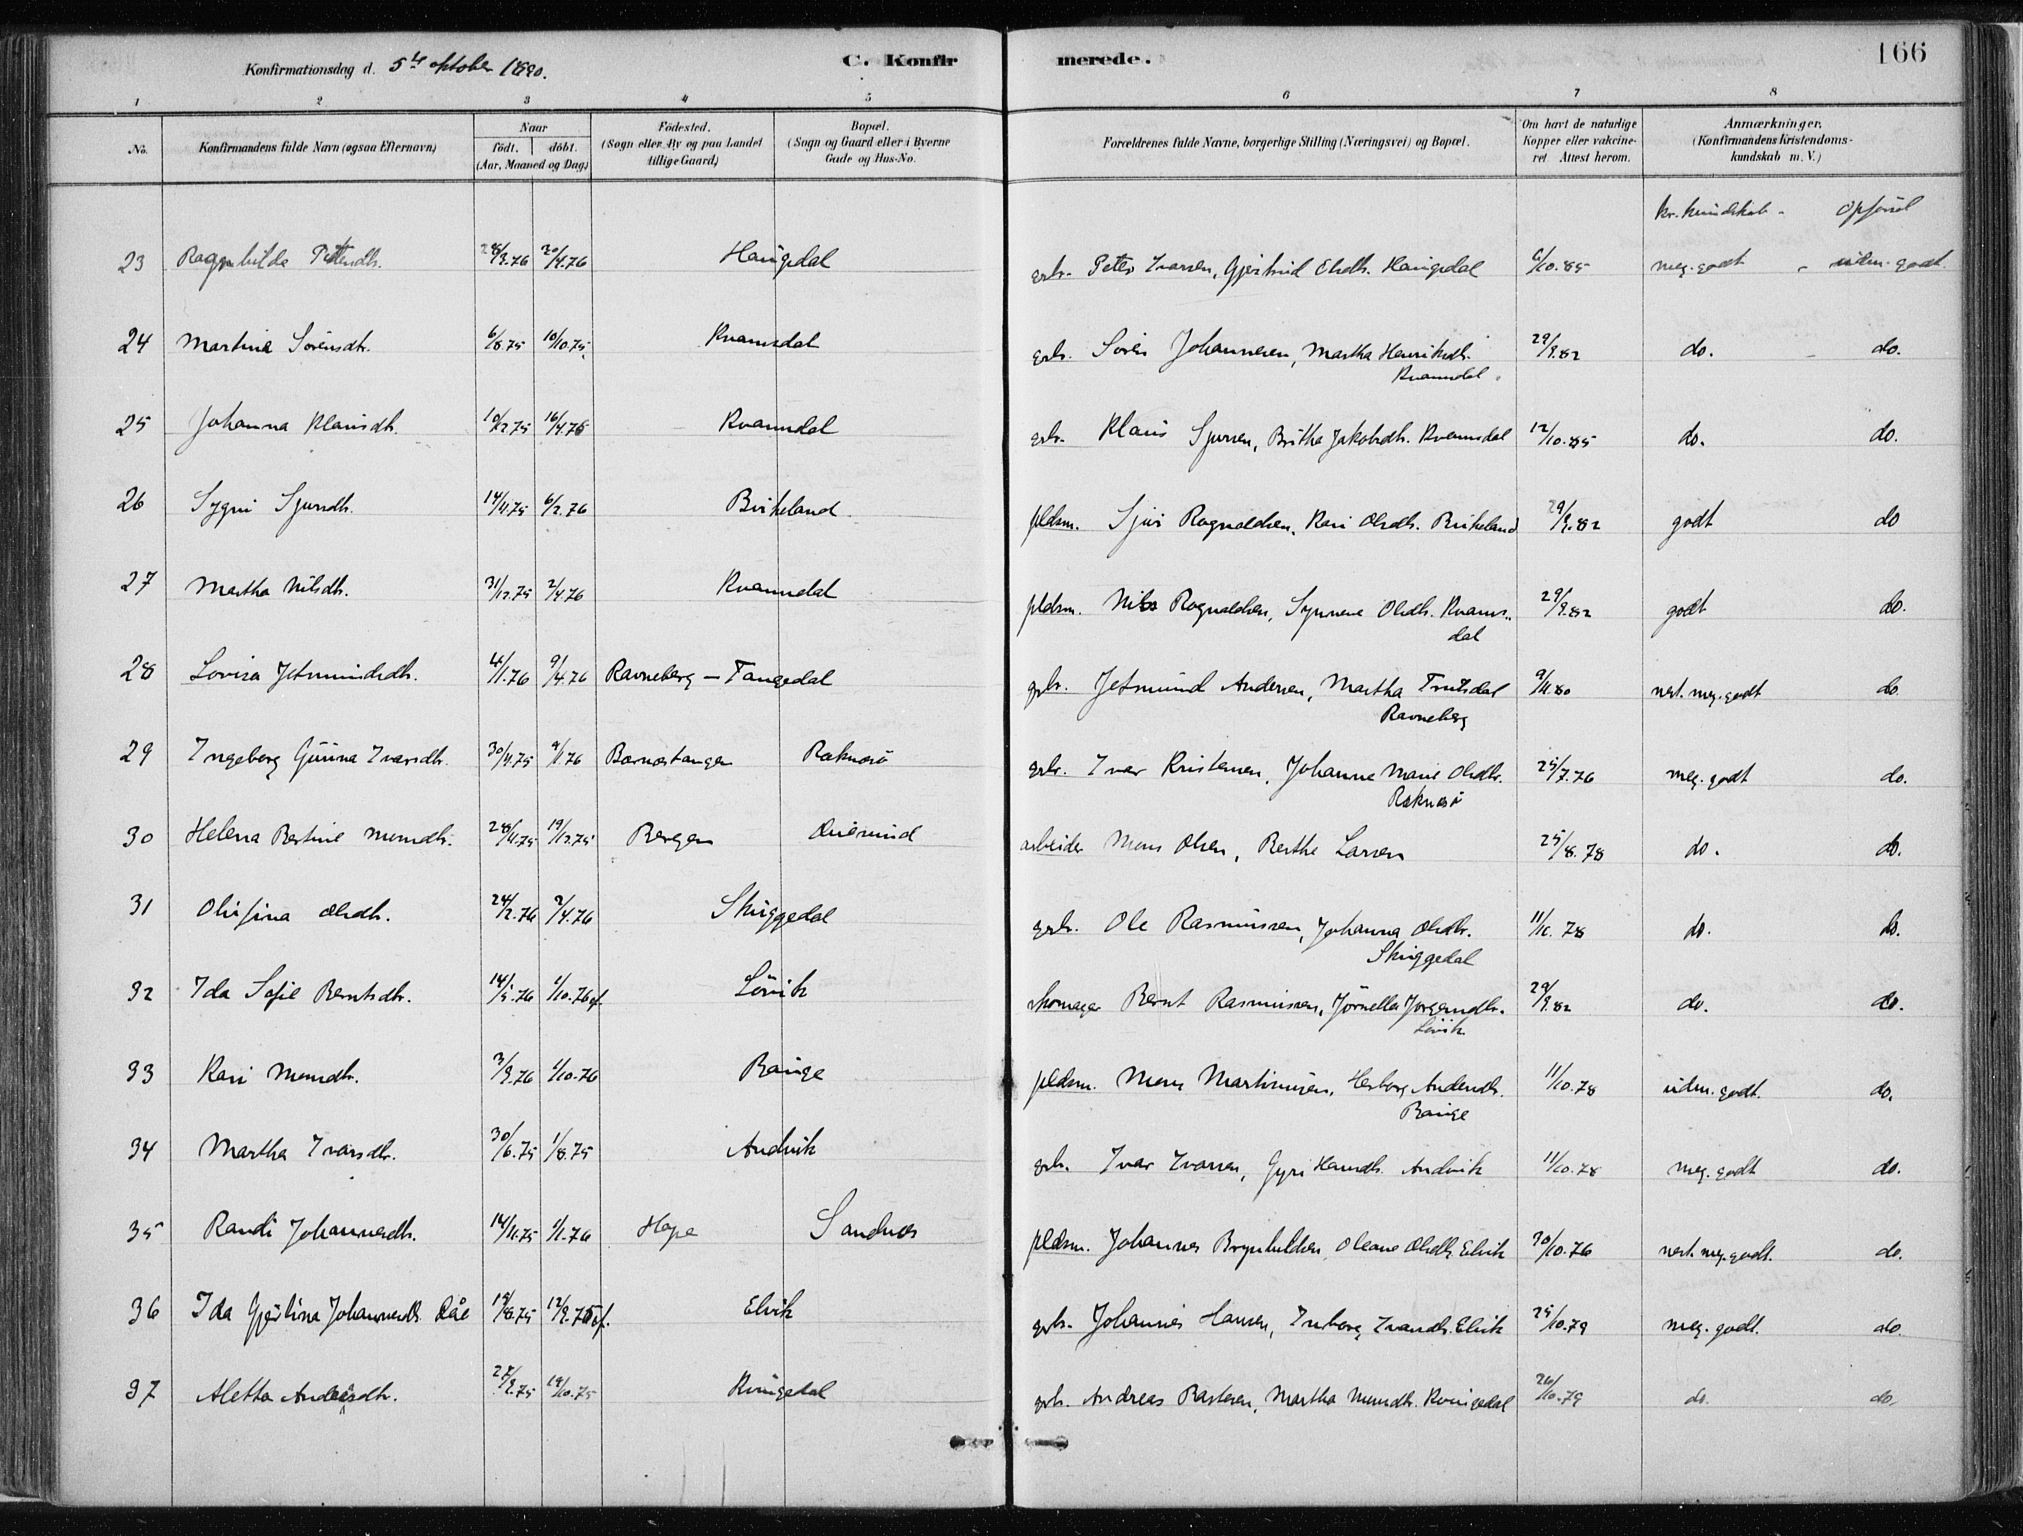 Konfirmationsdag d. 5te oktober 1890.
C. Konfirmerede.
166
1 2 3 4 5 6 7 8
No.
Konfirmandens fulde Navn (ogsaa Efternavn)
Naar
födt. döbt.
(Aar, Maaned og Dag)
Födested.
(Sogn eller By og paa Landet tillige Gaard)
Bopæl.
(Sogn og Gaard eller i Byerne Gade og Hus-No.
Forældrenes fulde Navne, borgerlige Stilling (Næringsvei) og Bopæl.
Om havt de naturlige Kopper eller vakcineret Attest herom.
Anmærkninger.
(Konfirmandens Kristendomskundskab m. V.)
kr. kundskab - Opförsel
23 Ragnhilda Pettersdtr. 28/3.76 20/4.76 Haugsdal grbr. Petter Ivarsen, Gjertrud Olsdtr. Haugsdal 6/10.85 meg. godt - udm. godt
24 Martine Sörensdtr. 6/8.75 10/10.75 Kvamsdal grbr. Sören Johannesen, Martha Henriksdtr. Kvamsdal 29/9.82 do. - do.
25 Johanna Klausdtr. 10/12.75 16/4.76 Kvamsdal grbr. Klaus Sjursen, Britha Jakobsdtr. Kvamsdal 12/10.85 do. do.
26 Sygni Sjursdtr. 14/11.75 6/2.76 Birkeland pldsm. Sjur Rognaldsen, Kari Olsdtr. Birkeland 29/9.82 godt do
27 Martha Nilsdtr. 31/12.75 2/4.76 Kvamsdal pldsm. Nils Rognaldsen, Synneve Olsdtr. Kvamsdal 29/9.82 godt do.
28 Lovisa Jetmundsdtr. 4/1.76 9/4.76 Ravneberg - Tangedal grbr. Jetmund Andersen, Martha Ravneberg 9/11.80 nest. meg. godt do
29 Ingeborg Gurina Ivarsdtr. 30/11.75 9/1.76 Bornestangen Raknesö grbr. Ivar Kristensen, Johanne Marie Olsdtr. Raknesö 25/7.76 meg. godt do.
30 Helena Bertine Monsdtr. 28/11.75 19/12.75 Bergen arbeider Mons Olsen, Berthe Larsen 25/8.78 do. do.
31 Olufina Olsdtr. 24/2.76 2/4.76 Skuggedal grbr. Ole Rasmussen, Johanna Olsdtr. Skuggedal 11/10.78 do. do.
32 Ida Sofie Berntsdtr. 14/5.76 1/10.76 Lövik skomager Bernt Rasmussen, Jörnella Jörgensdtr. Lövik 29/9.82 do. do.
33 Kari Monsdtr. 3/9.76 1/10.76 Bauge pldsm. Mons Martinusen, Herborg Andersdtr. Bauge 11/10.78 udm. godt. do.
34 Martha Ivarsdtr. 30/6.75 1/8.75 Andvik grbr. Ivar Ivarsen, Gyri Hansdtr. Andvik 11/10.78 meg. godt do.
35 Randi Johannesdtr. 14/11.75 1/1.76 Hope Sandnes pldsm. Johannes Brynhildsen, Oleane Olsdtr. Elvik 30/10.76 nest. meg. godt. do.
36 Ida Gjertina Johannesdtr. Råe 15/8.75 12/9.75 Elvik grbr. Johannes Hansen, Inborg Ivarsdtr. Elvik 25/10.79 meg. godt. do.
37 Aletta Andreasdtr. 27/9.75 19/10.75 Kvingedal grbr. Andreas Bastesen, Martha Monsdtr. Kvingedal 26/10.79 do. do.